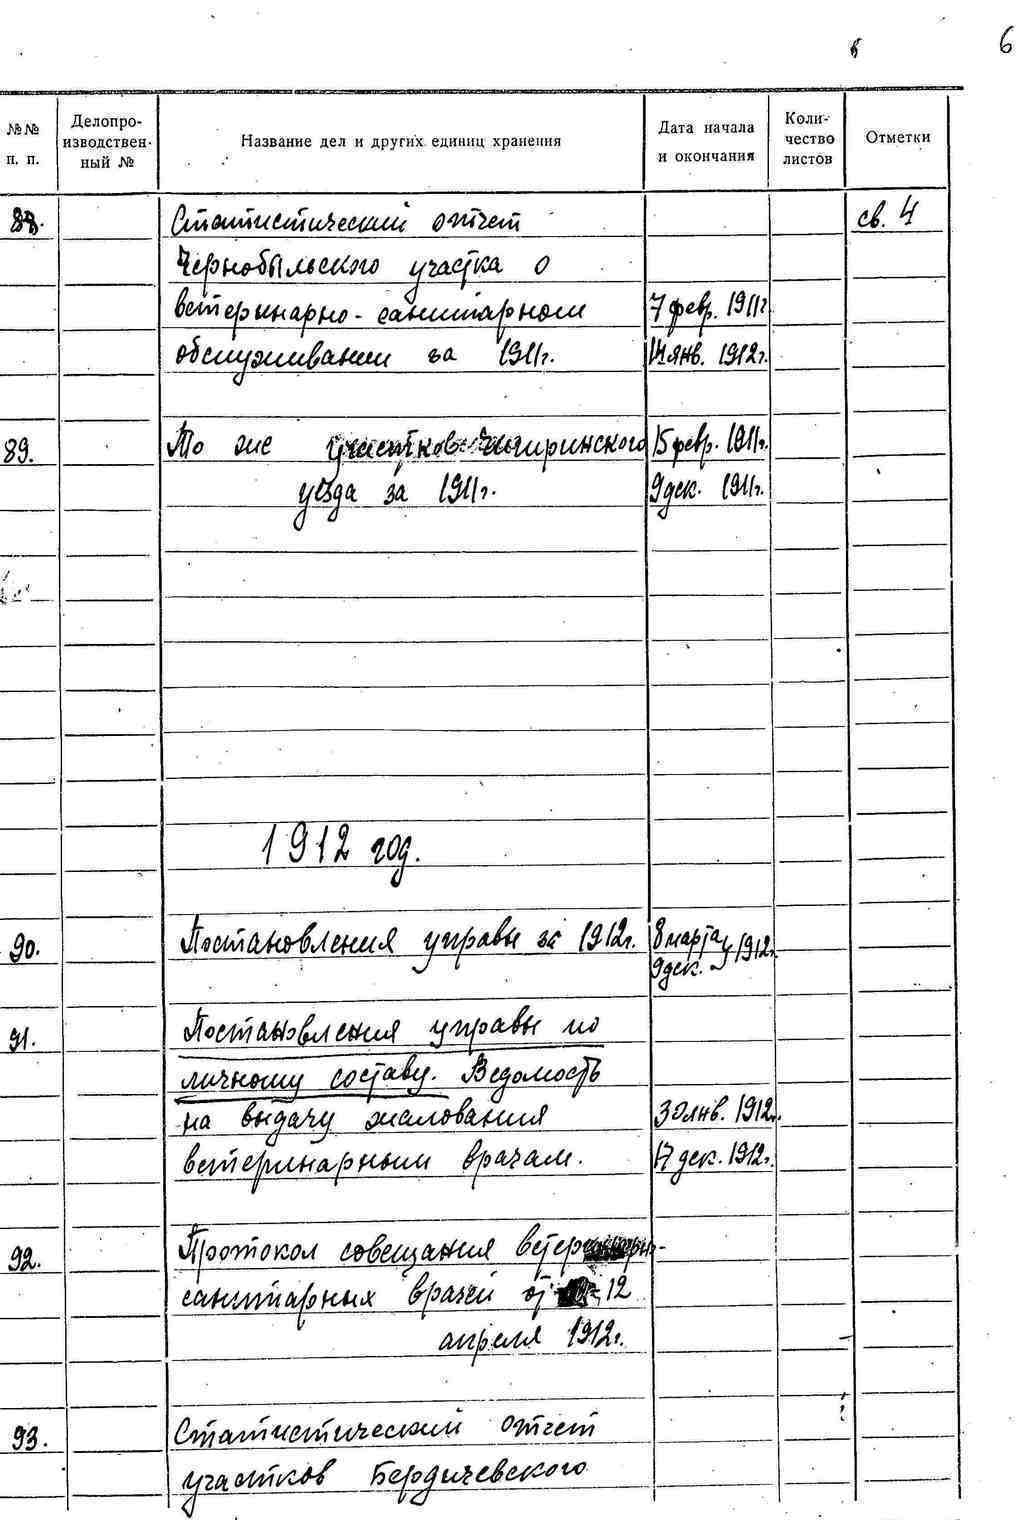 6
№№ п. п. Делопро-изводствен-ный № Название дел и других единиц хранения Дата начала и окончания Коли-чество листов Отметки
88. Статистический отчет св. 4
Чернобыльского участка о
ветеринарно-санитарном 7 февр. 1911г.
обслуживании за 1911г. 14 янв. 1912г.
89. То же участков Чигиринского 15 февр. 1911г.
уезда за 1911г. 9 дек. 1911г.
1912 год.
90. Постановления управы за 1912г. 8 марта 1912г.
9 дек.
91. Постановления управы по
личному составу. Ведомость
на выдачу жалования 30 янв. 1912г.
ветеринарным врачам. 17 дек. 1912г.
92. Протокол совещания ветеринарно-
санитарных врачей от 12
апреля 1912г.
93. Статистический отчет
участков Бердичевского